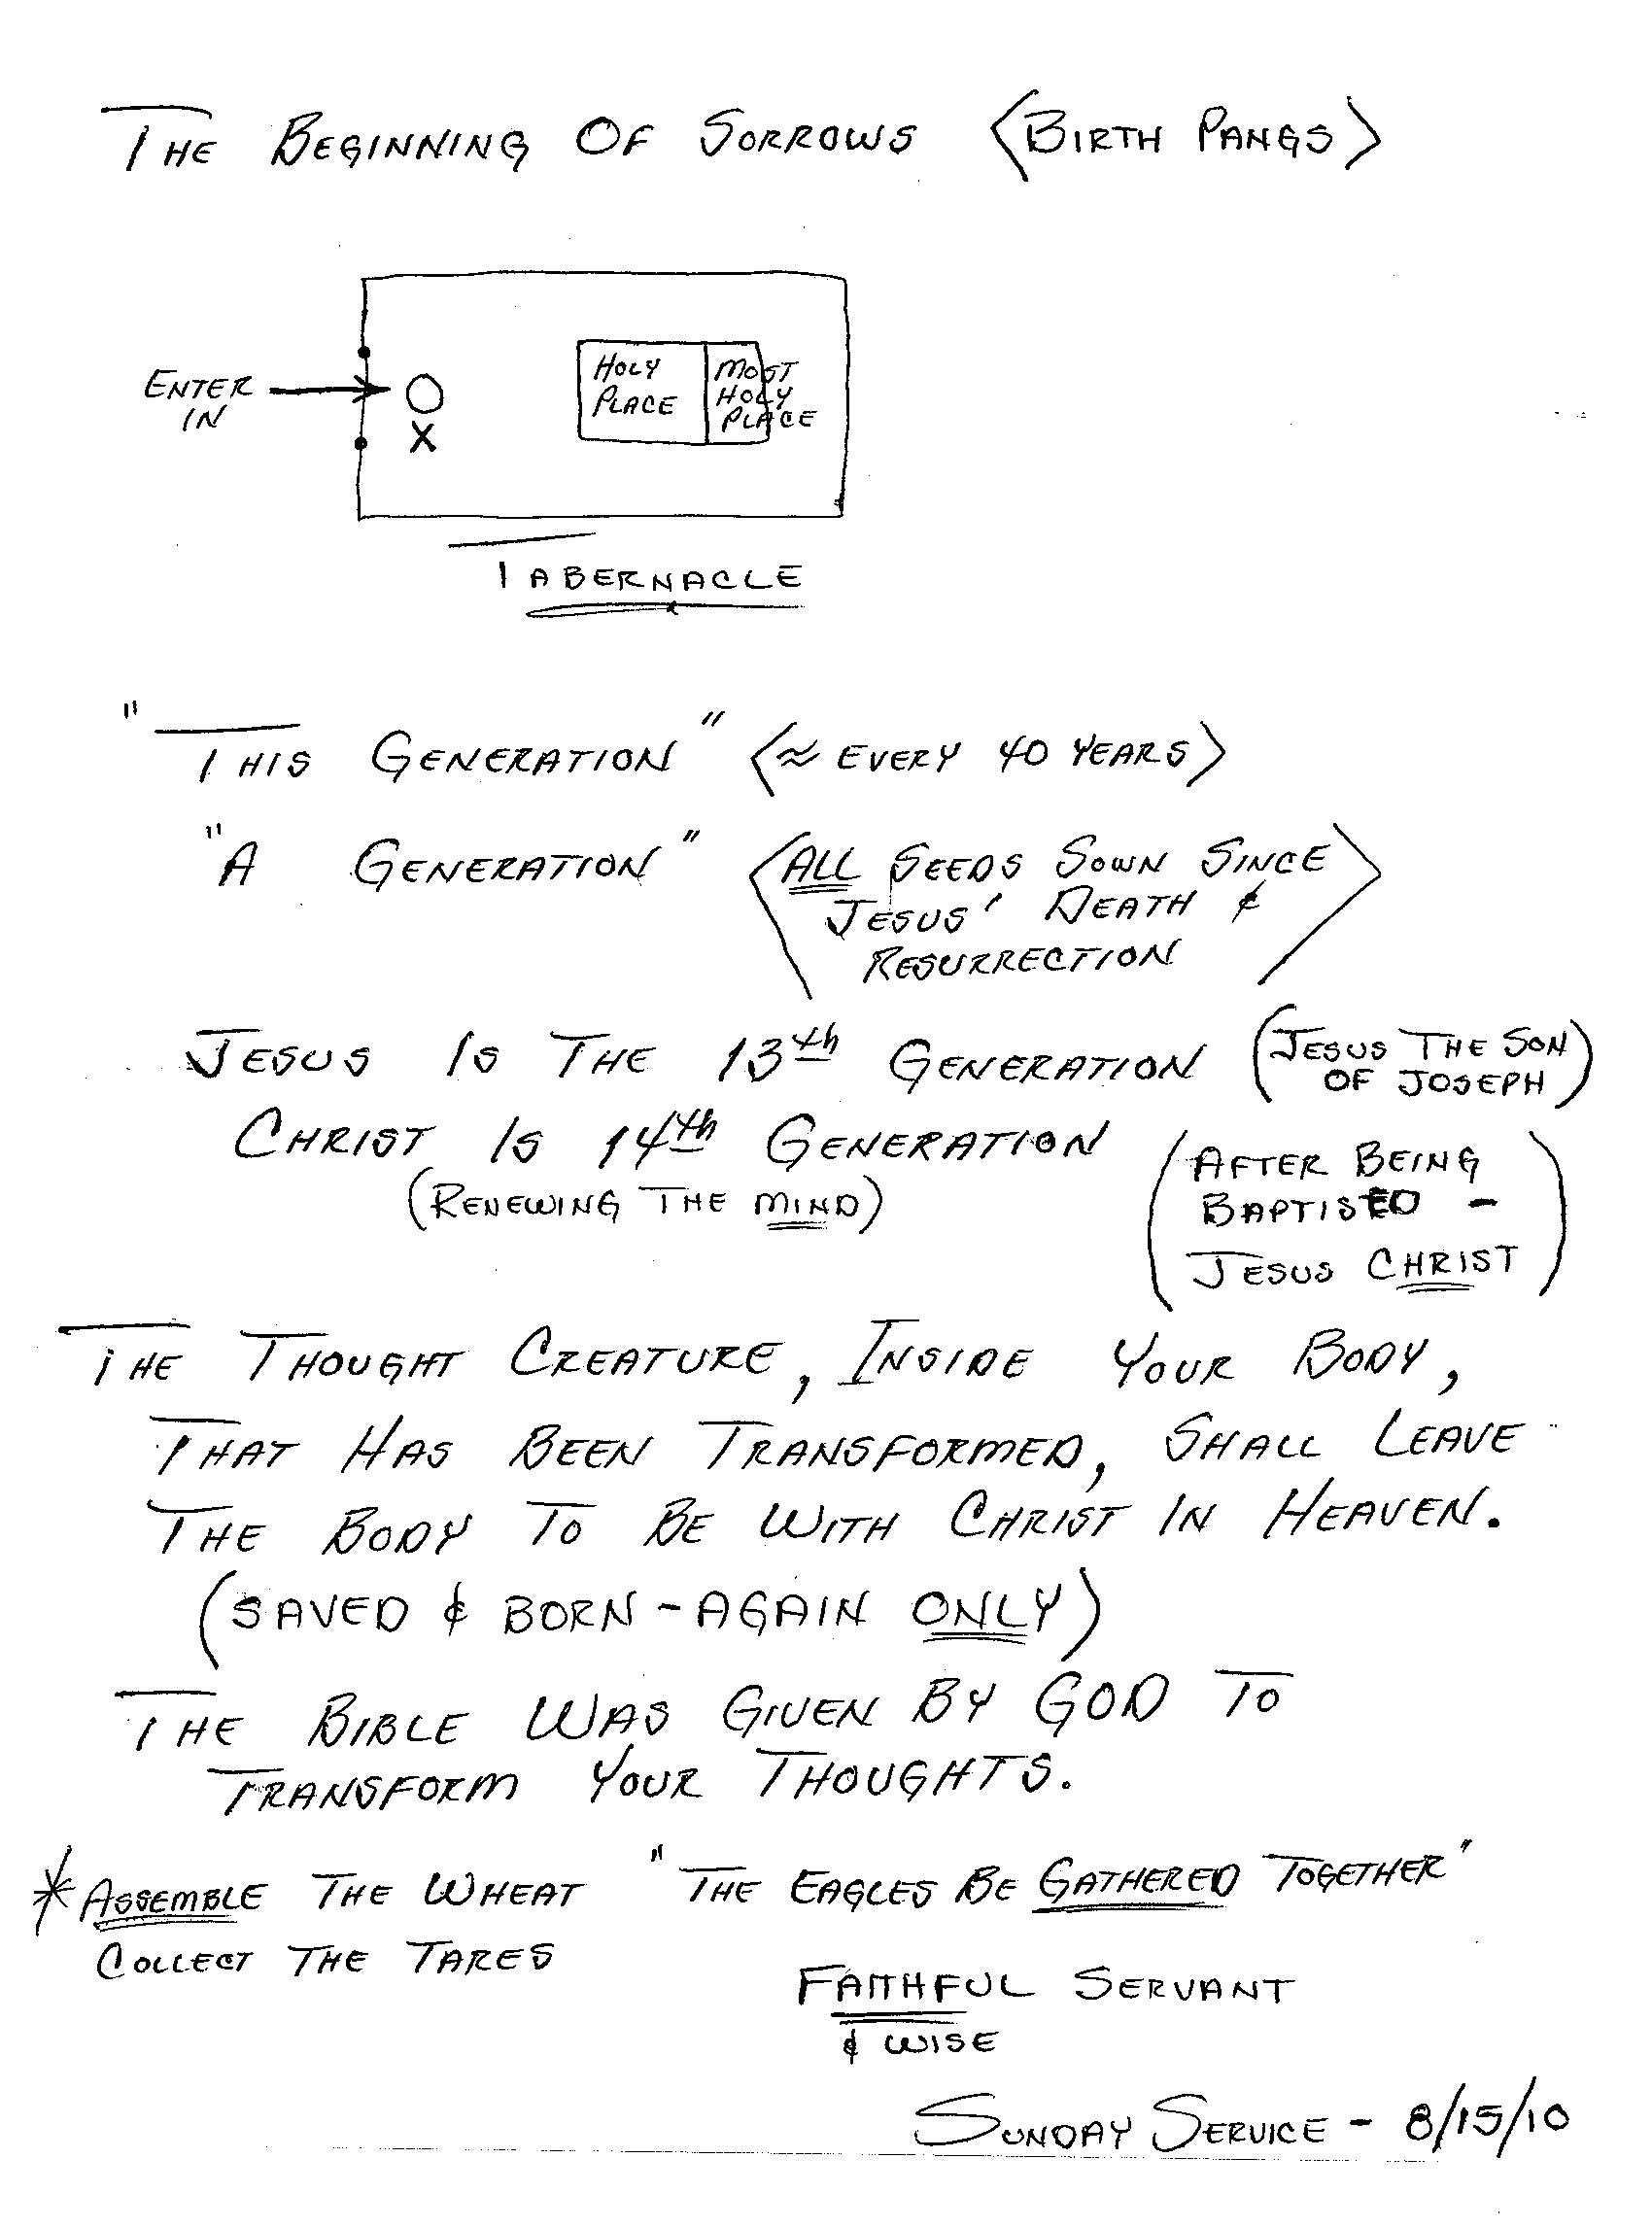 THE BEGINNING OF SORROWS <BIRTH PANGS>
ENTER
IN
O
X
HOLY
PLACE
MOST
HOLY
PLACE
TABERNACLE
"THIS GENERATION" <≈ EVERY 40 YEARS>
"A GENERATION" <ALL SEEDS SOWN SINCE
JESUS' DEATH &
RESURRECTION>
JESUS IS THE 13th GENERATION (JESUS THE SON
OF JOSEPH)
CHRIST IS 14th GENERATION
(RENEWING THE MIND)
(AFTER BEING
BAPTISED -
JESUS CHRIST)
THE THOUGHT CREATURE, INSIDE YOUR BODY,
THAT HAS BEEN TRANSFORMED, SHALL LEAVE
THE BODY TO BE WITH CHRIST IN HEAVEN.
(SAVED & BORN-AGAIN ONLY)
THE BIBLE WAS GIVEN BY GOD TO
TRANSFORM YOUR THOUGHTS.
*ASSEMBLE THE WHEAT "THE EAGLES BE GATHERED TOGETHER"
COLLECT THE TARES
FAITHFUL SERVANT
& WISE
SUNDAY SERVICE - 8/15/10